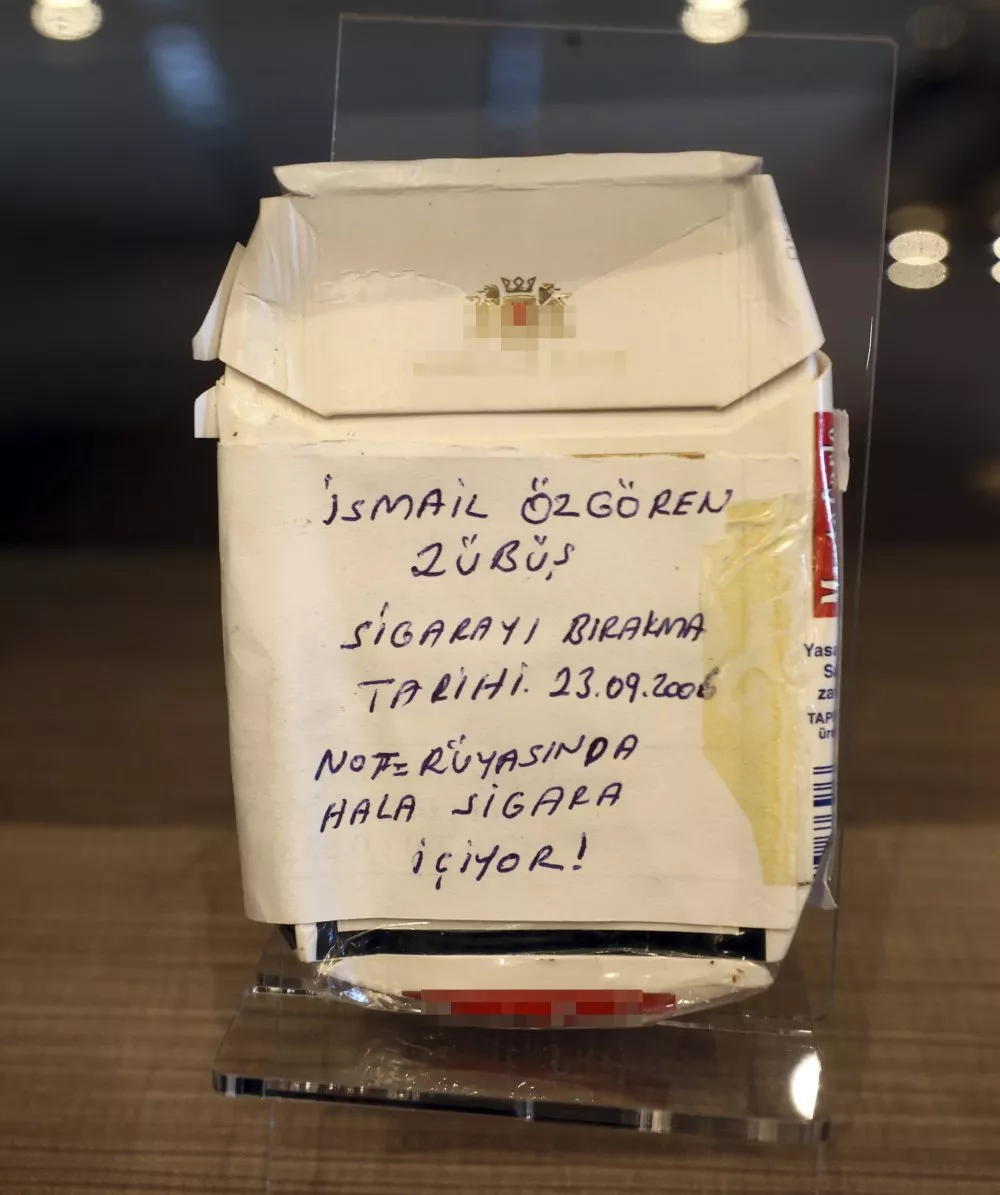 İSMAİL ÖZGÖREN
ZÜBÜŞ
SİGARAYI BIRAKMA
TARİHİ. 23.09.2006
NOT= RÜYASINDA
HALA SİGARA
İÇİYOR!
Yasa
TAP